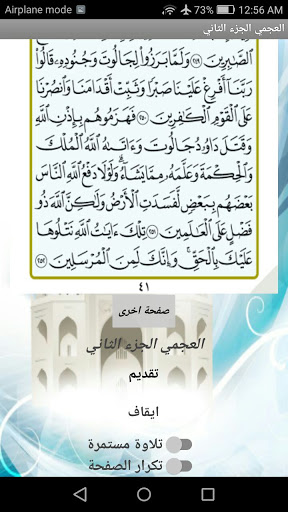 Airplane mode 73% 12:56 AM
العجمي الجزء الثاني
ٱلصَّٰبِرِينَ ٢٤٩ وَلَمَّا بَرَزُوا۟ لِجَالُوتَ وَجُنُودِهِۦ قَالُوا۟
رَبَّنَآ أَفْرِغْ عَلَيْنَا صَبْرًا وَثَبِّتْ أَقْدَامَنَا وَٱنصُرْنَا
عَلَى ٱلْقَوْمِ ٱلْكَٰفِرِينَ ٢٥٠ فَهَزَمُوهُم بِإِذْنِ ٱللَّهِ
وَقَتَلَ دَاوُۥدُ جَالُوتَ وَءَاتَىٰهُ ٱللَّهُ ٱلْمُلْكَ
وَٱلْحِكْمَةَ وَعَلَّمَهُۥ مِمَّا يَشَآءُ ۗ وَلَوْلَا دَفْعُ ٱللَّهِ ٱلنَّاسَ
بَعْضَهُم بِبَعْضٍ لَّفَسَدَتِ ٱلْأَرْضُ وَلَٰكِنَّ ٱللَّهَ ذُو
فَضْلٍ عَلَى ٱلْعَٰلَمِينَ ٢٥١ تِلْكَ ءَايَٰتُ ٱللَّهِ نَتْلُوهَا
عَلَيْكَ بِٱلْحَقِّ ۚ وَإِنَّكَ لَمِنَ ٱلْمُرْسَلِينَ ٢٥٢
٤١
صفحة اخرى
العجمي الجزء الثاني
تقديم
ايقاف
تلاوة مستمرة
تكرار الصفحة